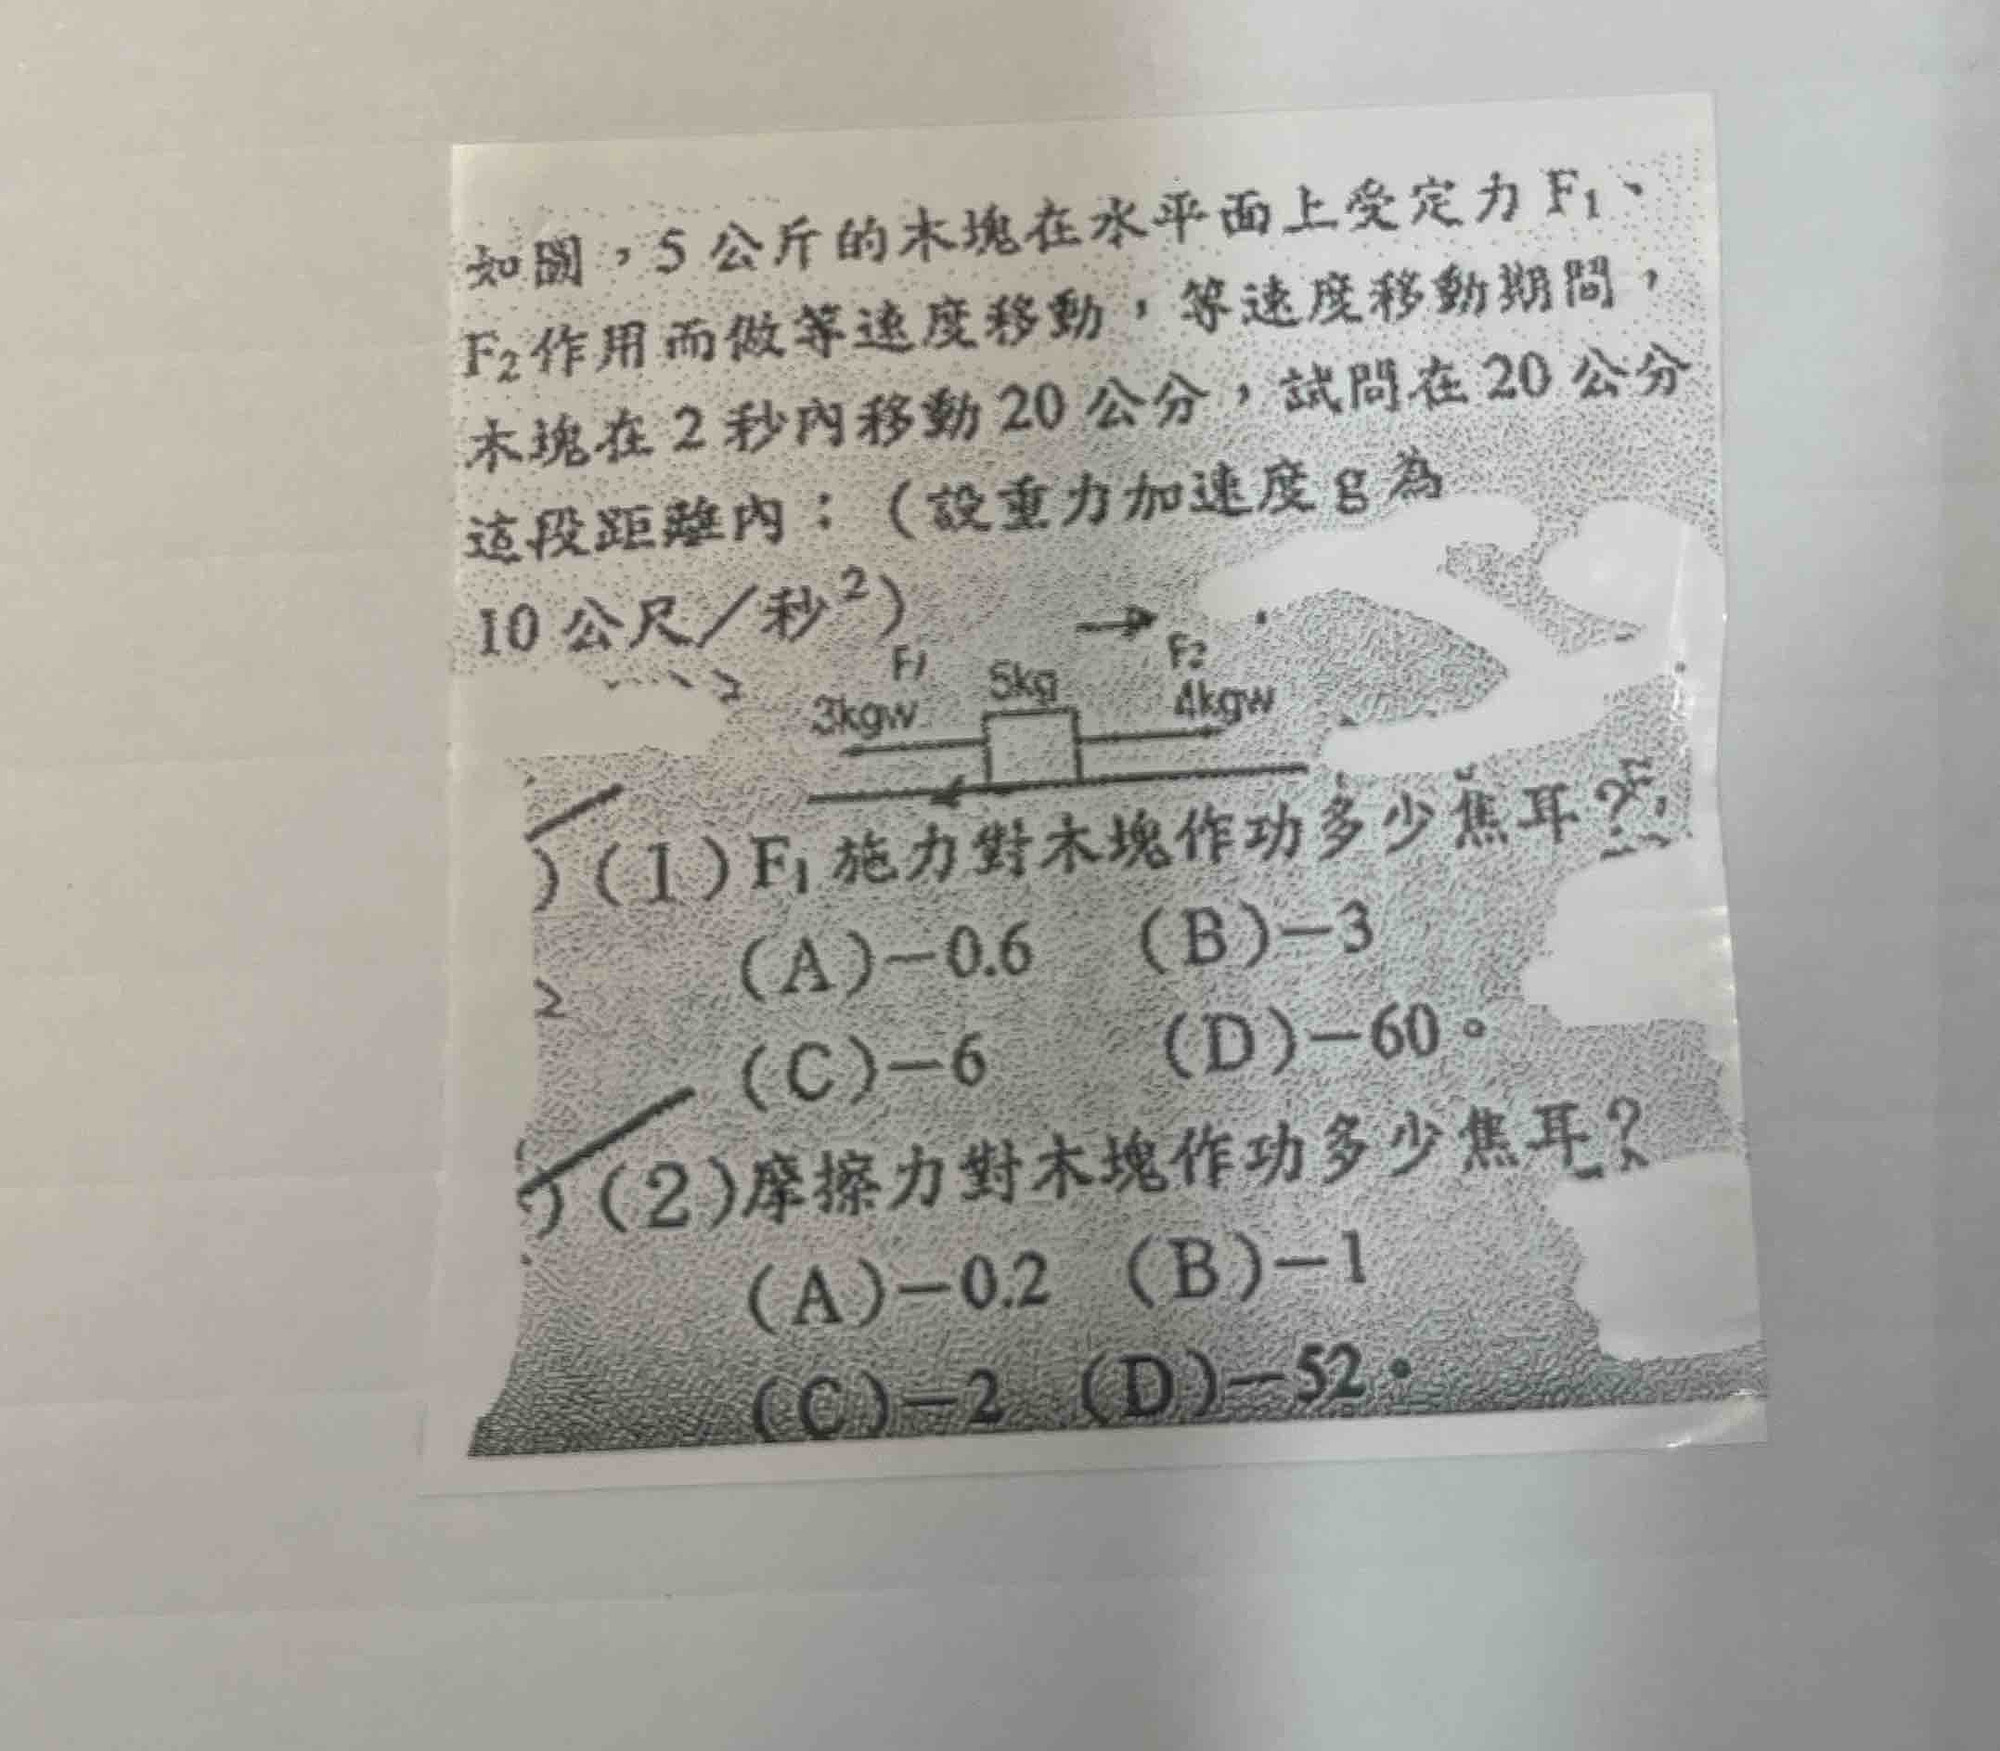 如圖，5公斤的木塊在水平面上受定力F₁、
F₂作用而做等速度移動，等速度移動期間，
木塊在2秒內移動20公分，試問在20公分
這段距離內：（設重力加速度g為
10公尺／秒²）
F1 5kg F2
3kgw 4kgw
)(1)F₁施力對木塊作功多少焦耳？
(A)－0.6 (B)－3
2
(C)－6 (D)－60。
)(2)摩擦力對木塊作功多少焦耳？
(A)－0.2 (B)－1
(C)－2 (D)－52。